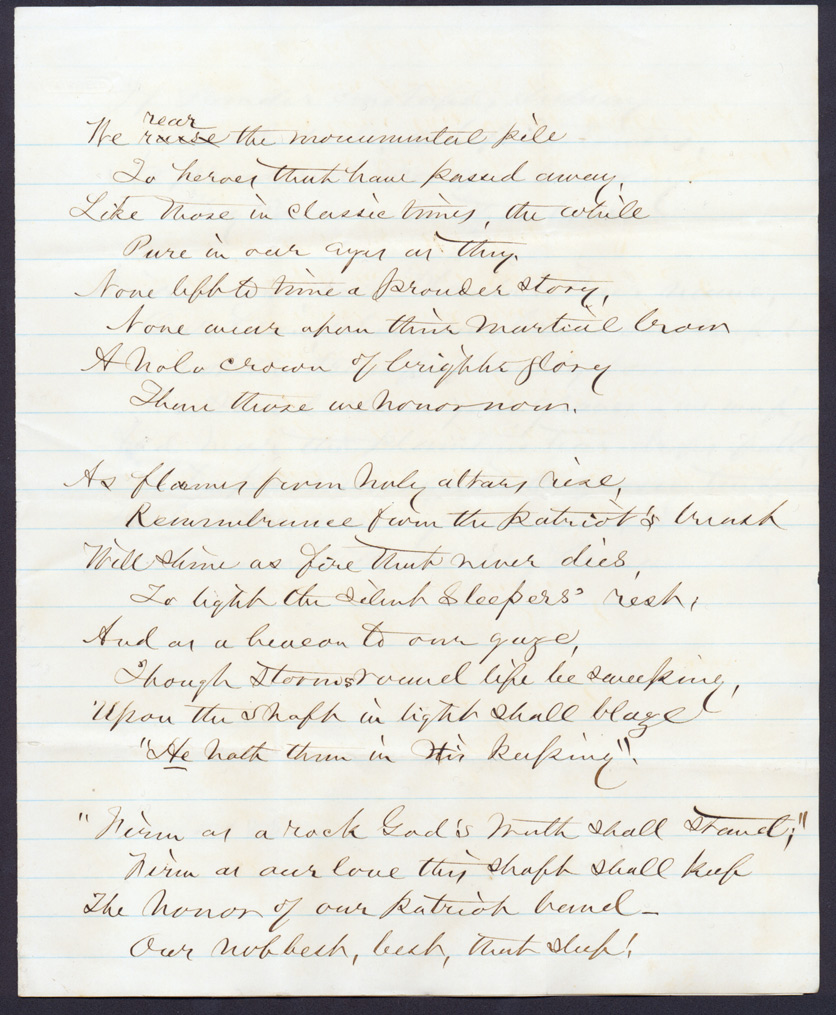 We raise rear the monumental pile
To heroes that have passed away,
Like those in classic times, the while
Pure in our eyes as they.
None left to time a prouder story,
None wear upon their martial brow
A halo crown of brighter glory
Than those we honor now.
As flames from holy altars rise,
Remembrance from the patriot's breast
Will shine as fire that never dies,
To light the silent sleepers' rest;
And as a beacon to our gaze,
Though storms round life be sweeping,
Upon the shaft in light shall blaze
"He hath them in His keeping".
"Firm as a rock God's truth shall stand;"
Firm as our love this shaft shall keep
The honor of our patriot band –
Our noblest, best, that sleep!